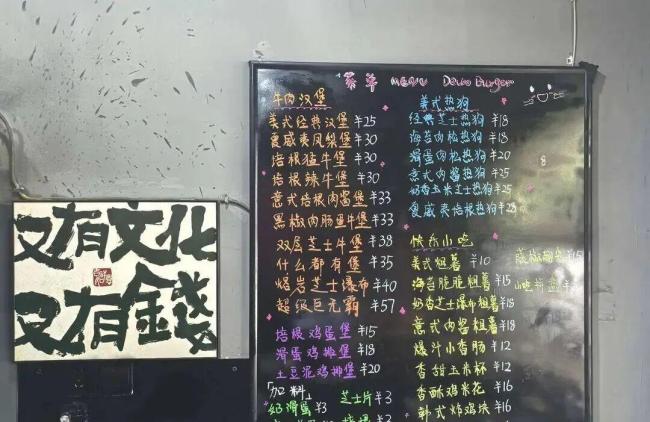 又有文化
又有錢
菜单 MENU Down Burger
牛肉汉堡
美式经典汉堡 ¥25
夏威夷凤梨堡 ¥30
培根猛牛堡 ¥30
培根辣牛堡 ¥30
意式培根肉酱堡 ¥33
黑椒肉肠鱼牛堡 ¥33
双层芝士牛堡 ¥38
什么都有堡 ¥35
熔岩芝士瀑布 ¥40
超级巨无霸 ¥57
培根鸡蛋堡 ¥15
滑蛋鸡排堡 ¥18
土豆泥鸡排堡 ¥20
「加料」 芝士片 ¥3
奶滑蛋 ¥3
美式热狗
经典芝士热狗 ¥18
海苔肉松热狗 ¥18
滑蛋肉松热狗 ¥20
意式肉酱热狗 ¥25
奶香玉米芝士热狗 ¥25
夏威夷培根热狗 ¥28
快乐小吃
美式粗薯 ¥10
海苔脆脆粗薯 ¥15
奶香芝士瀑布粗薯 ¥18
意式肉酱粗薯 ¥18
爆汁小香肠 ¥12
香甜玉米杯 ¥12
香酥鸡米花 ¥16
韩式炸鸡块 ¥16